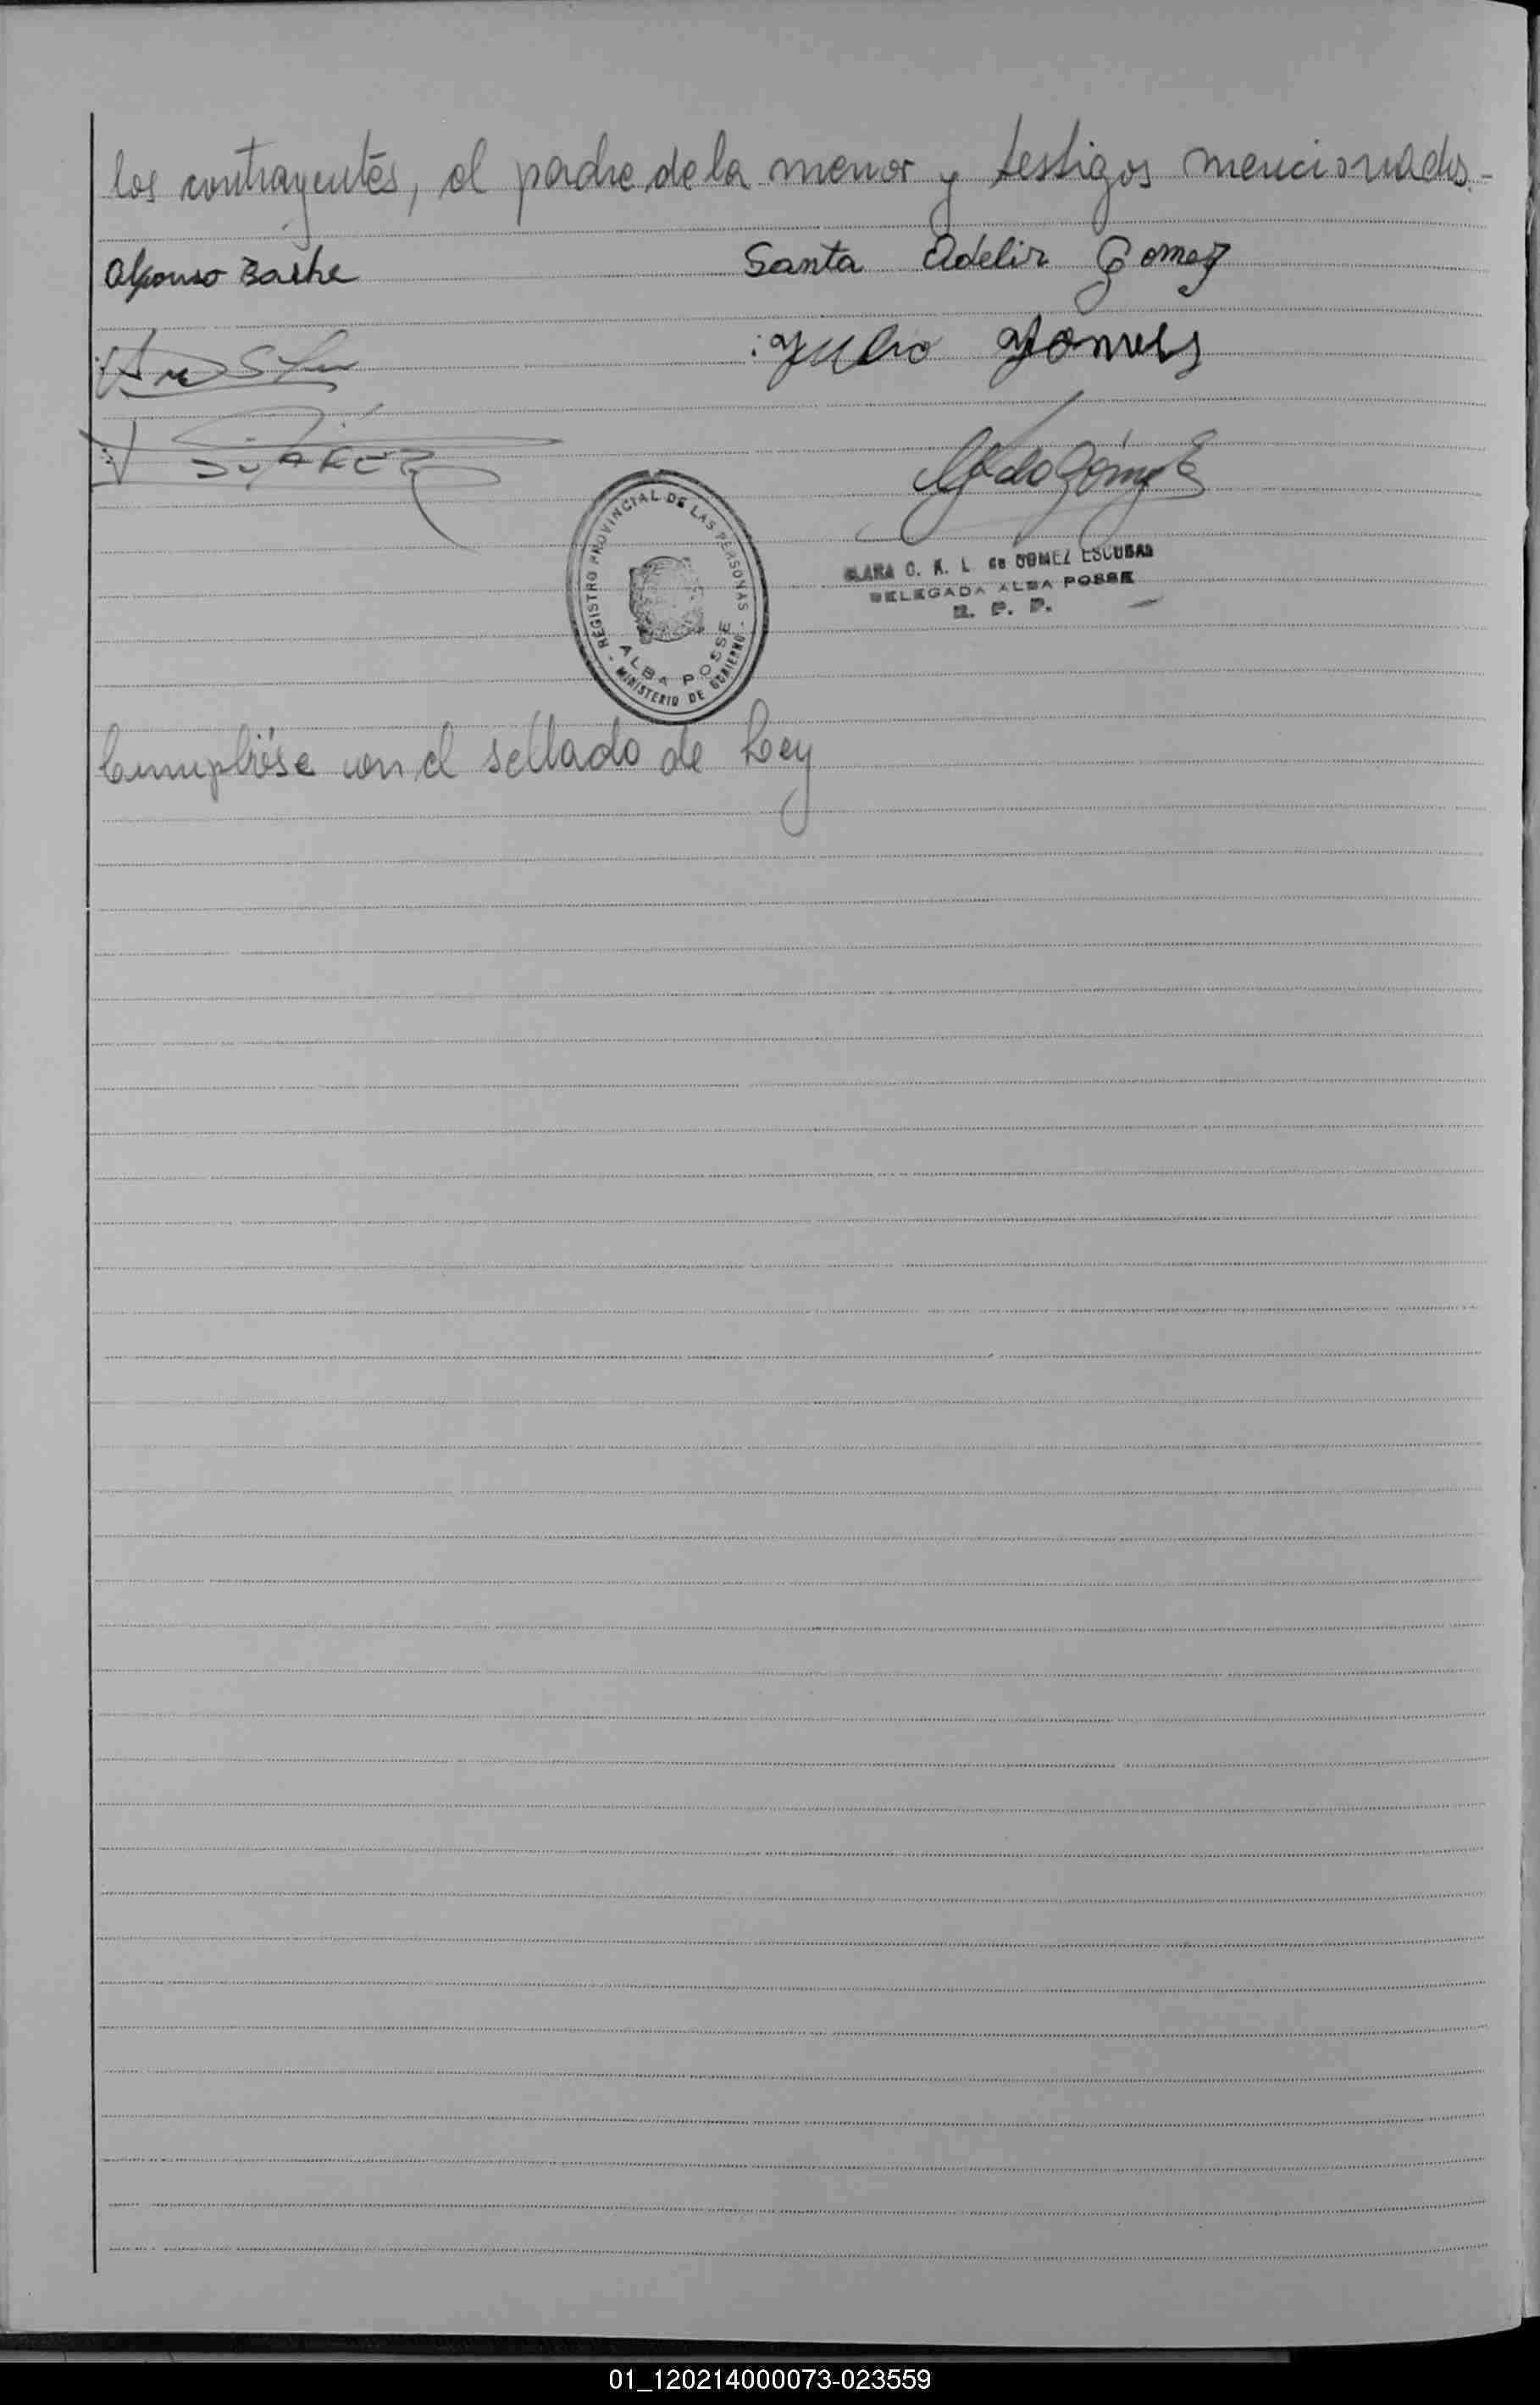 los contrayentes, el padre de la menor y testigos mencionados.-
Alfonso Bathe
Santa Adelir Gomez
Julio Gomes
SUAREZ
REGISTRO PROVINCIAL DE LAS PERSONAS - MINISTERIO DE GOBIERNO -
ALBA POSSE
CLARA O. K. L. de GOMEZ ESCOBAR
DELEGADA ALBA POSSE
R. P. P.
Cumplióse con el sellado de Ley
01_120214000073-023559